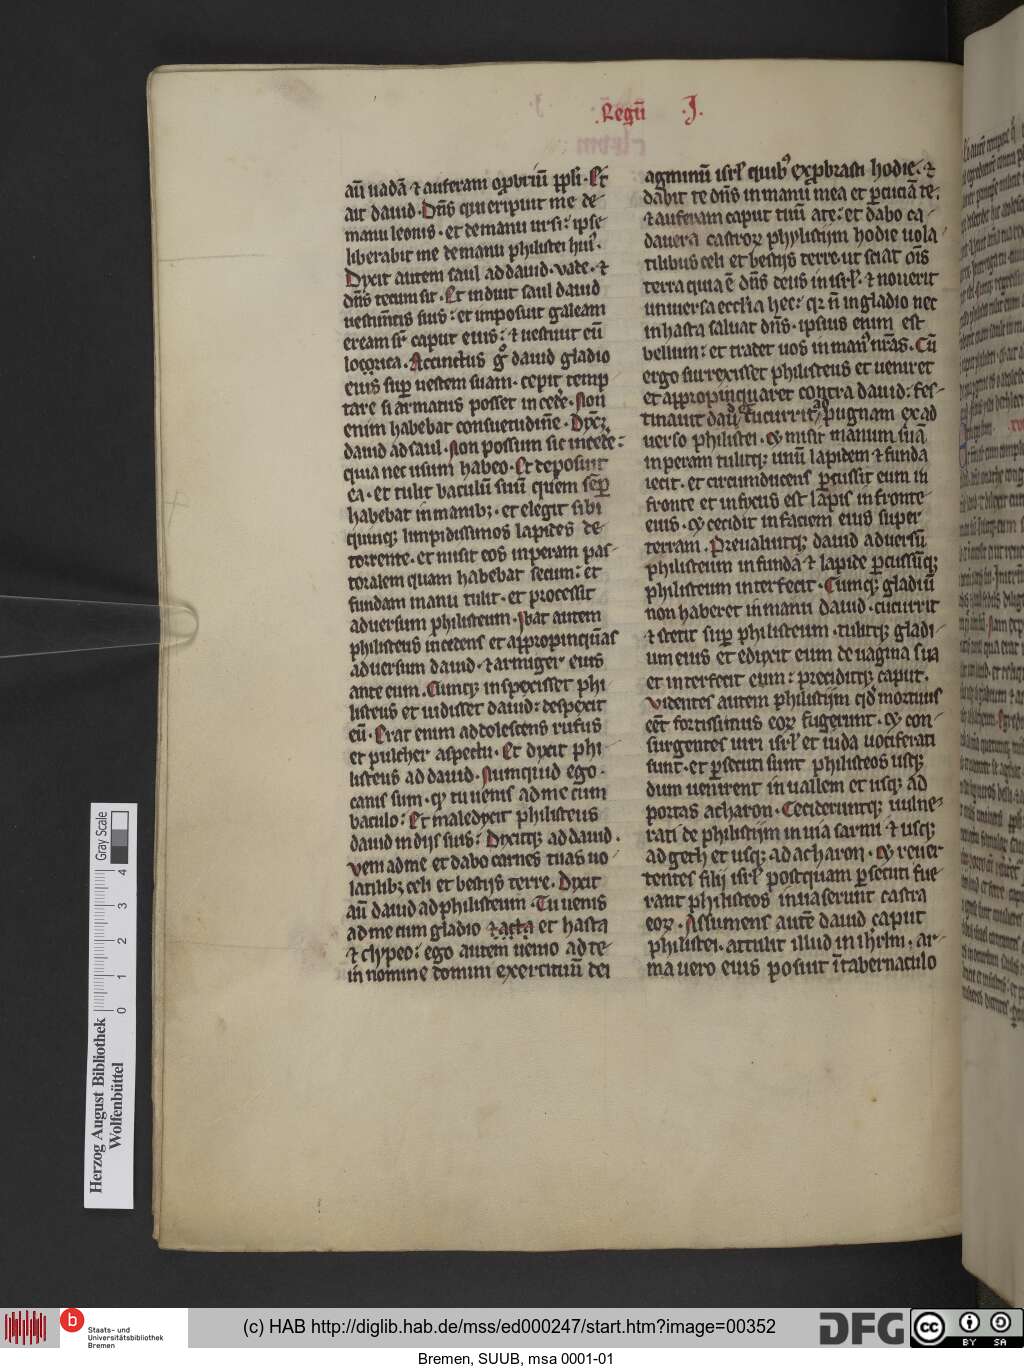 Regū .I.
aū uadā ⁊ auferam opprriū ppli. Et
ait dauid. Dn̄s qui eripuit me de
manu leonis. et de manu ursi: ipse
liberabit me de manu philistei huiꝰ.
Dyxit autem saul ad dauid. vade. ⁊
dn̄s tecum sit. Et induit saul dauid
uestimētis suis: et imposuit galeam
eream sr̄ caput eius: ⁊ uestiuit eū
lorica. Accinctus gͦ dauid gladio
eius suꝑ uestem suam. cepit temp
tare si armatus posset incedē. Non
enim habebat consuetudinē. Dyxitqꝫ
dauid ad saul. Non possum sic incedē:
quia nec usum habeo. Et deposuit
ea. et tulit baculū suū quem semꝑ
habebat in manibꝫ. et elegit sibi
quinqꝫ limpidissimos lapides de
torrente. et misit eos in peram pas
toralem quam habebat secum: et
fundam manu tulit. et processit
aduersum philisteum. Ibat autem
philisteus incedens et appropinquās
aduersum dauid. ⁊ armiger eius
ante eum. Cumqꝫ inspexisset phi
listeus et uidisset dauid: despexit
eū. Erat enim adolescens rufus
et pulcher aspectu. Et dyxit phi
listeus ad dauid. Numquid ego
canis sum. qꝫ tu uenis ad me cum
baculo: Et maledyxit philisteus
dauid in dijs suis: Dyxitqꝫ ad dauid.
veni ad me et dabo carnes tuas uo
latilibꝫ celi et bestijs terre. Dyxit
aū dauid ad philisteum. Tu uenis
ad me cum gladio ⁊ acta et hasta
⁊ clypeo: ego autem uenio ad te
in nomine domini exercituū dei
agminū isrl̄ quibꝰ exprobrasti hodie. ⁊
dabit te dn̄s in manu mea et ꝑcuciā te.
⁊ auferam caput tuū a te: et dabo ca
dauera castroꝝ phylistijm hodie uola
tilibus celi et bestijs terre. ut sciat oīs
terra quia ē dn̄s deus in isrl̄. ⁊ nouerit
uniuersa ecclīa hec: qꝛ n̄ in gladio nec
in hasta saluat dn̄s. ipsius enim est
bellum: et tradet uos in manꝰ nr̄as. Cū
ergo surrexisset philisteus et ueniret
et appropinquaret contra dauid: fes
tinauit dauid ⁊ cucurrit ad pugnam ex ad
uerso philistei. Et misit manum suā
in peram tulitqꝫ unū lapidem ⁊ funda
iecit. et circumducens ꝑcussit eum in
fronte et infixus est lapis in fronte
eius. Et cecidit in faciem eius super
terram. Preualuitqꝫ dauid aduersū
philisteum in funda ⁊ lapide ꝑcussūqꝫ
philisteum interfecit. Cumqꝫ gladiū
non haberet in manu dauid. cucurrit
⁊ stetit suꝑ philisteum. tulitqꝫ gladi
um eius et edyxit eum de uagina sua
et interfecit eum: preciditqꝫ caput.
Videntes autem philistijm qd̓ mortuus
eēt fortissimus eoꝝ fugerunt. Et con
surgentes uiri isrl̄ et iuda uociferati
sunt. et ꝑsecuti sunt philisteos usqꝫ
dum uenirent in uallem et usqꝫ ad
portas acharon. Cecideruntqꝫ uulne
rati de philistijm in uia sarim ⁊ usqꝫ
ad geth et usqꝫ ad acharon. Et reuer
tentes filij isrl̄ postquam ꝑsecuti fue
rant philisteos inuaserunt castra
eoꝝ. Assumens autē dauid caput
philistei. attulit illud in ihrlm. ar
ma uero eius posuit ī tabernaculo
Herzog August Bibliothek
Wolfenbüttel
Gray Scale
0 1 2 3 4
b Staats- und
Universitätsbibliothek
Bremen
(c) HAB http://diglib.hab.de/mss/ed000247/start.htm?image=00352
DFG
cc BY SA
Bremen, SUUB, msa 0001-01